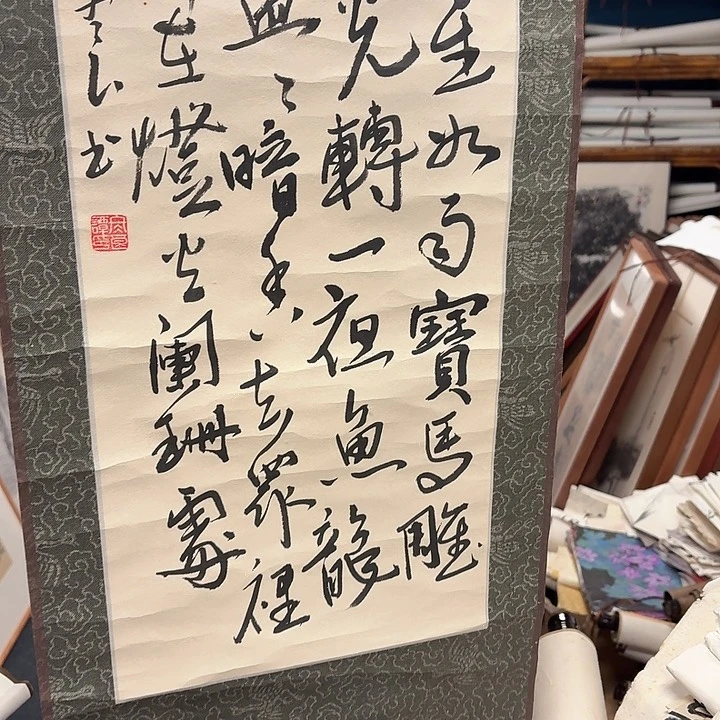 星如雨寶馬雕
光轉一夜魚龍
盈々暗香去眾裡
在燈火闌珊處
书